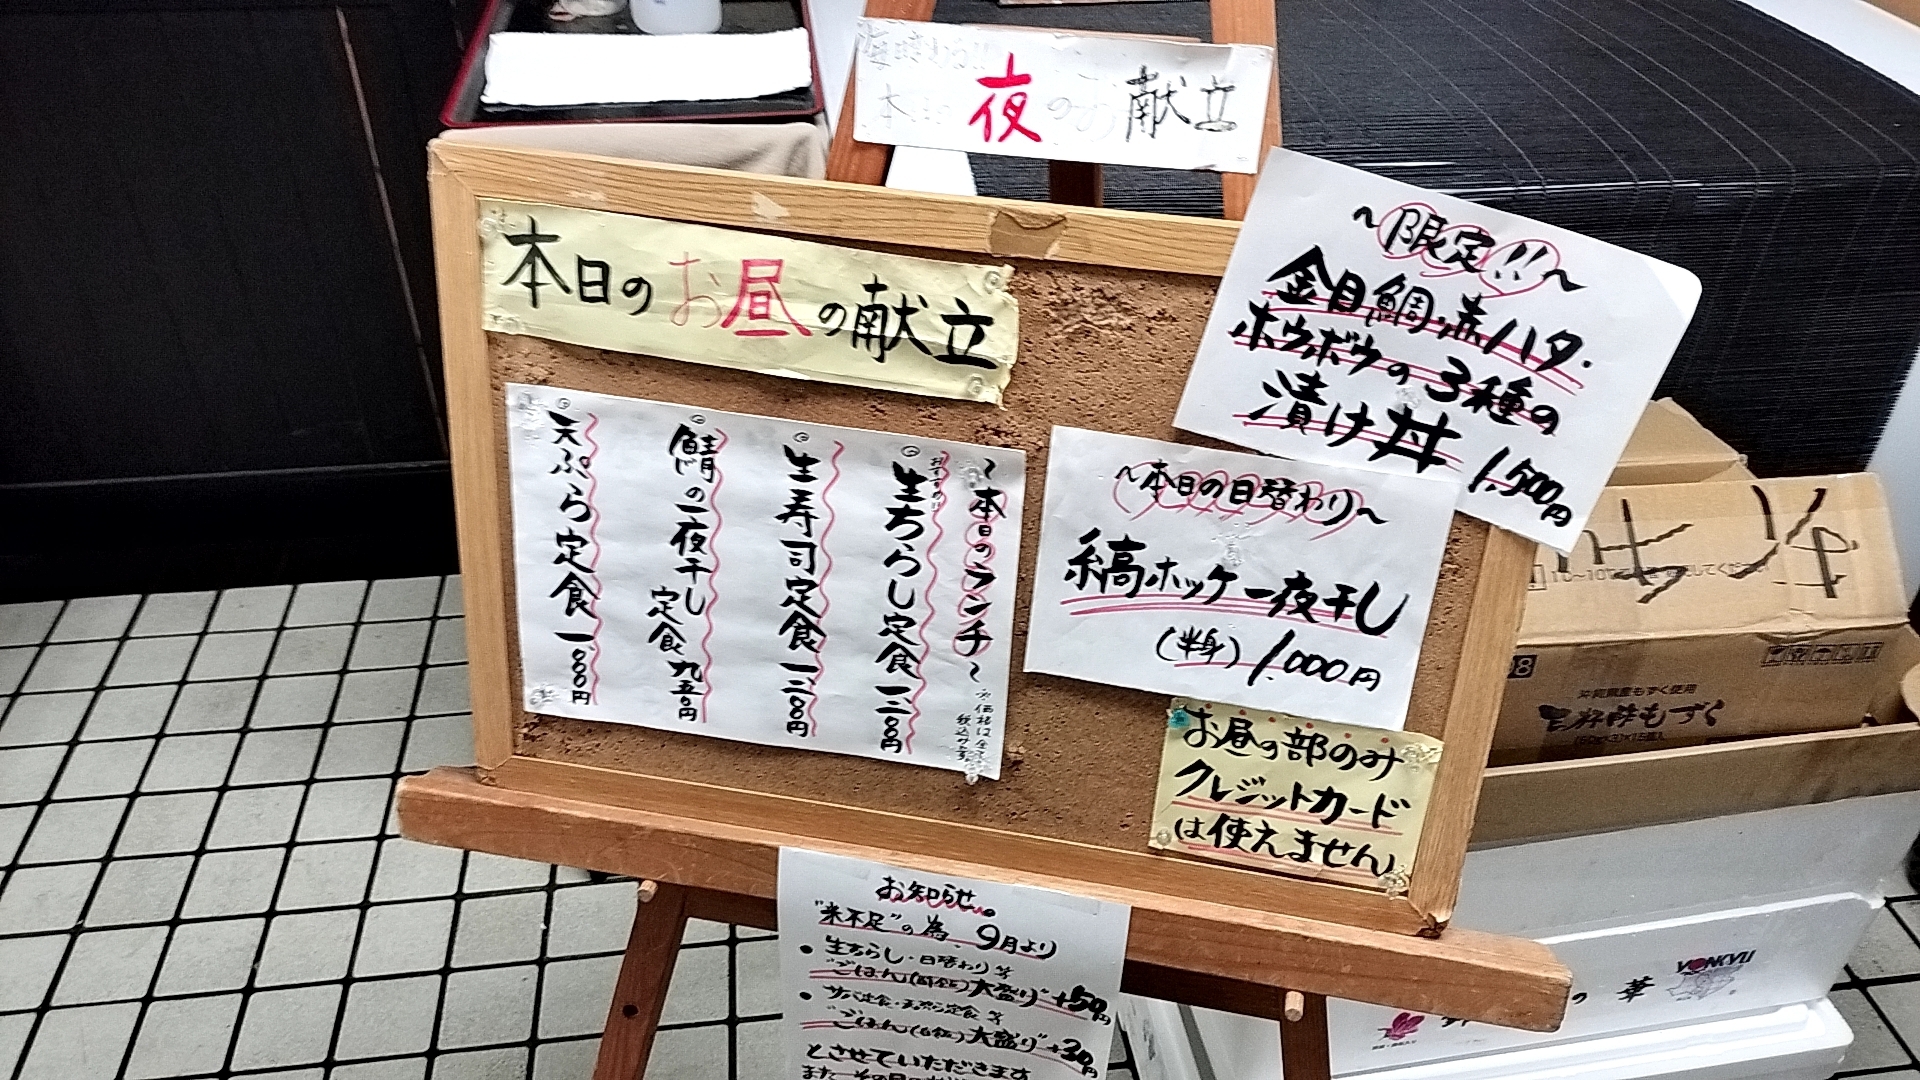 本日 夜のお献立
本日のお昼の献立
～限定!!～
金目鯛・赤ハタ・
ホウボウの3種の
漬け丼 1,500円
～本日のランチ～
※価格は全
税込みです
おすすめ!!
生ちらし定食 一、二〇〇円
生寿司定食 一、二〇〇円
鯖の一夜干し
定食 九五〇円
天ぷら定食 一、〇〇〇円
～本日の日替わり～
縞ホッケ一夜干し
(半身) 1,000円
お昼の部のみ
クレジットカード
は使えません
お知らせ
"米不足"の為、9月より
・生ちらし・日替わり等
"ごはん 大盛り"+50円
・サバ定食・天ぷら定食 等
"ごはん(白飯)大盛り"+30円
とさせていただきます
沖縄県産もずく使用
もずく
の華
YONKYU